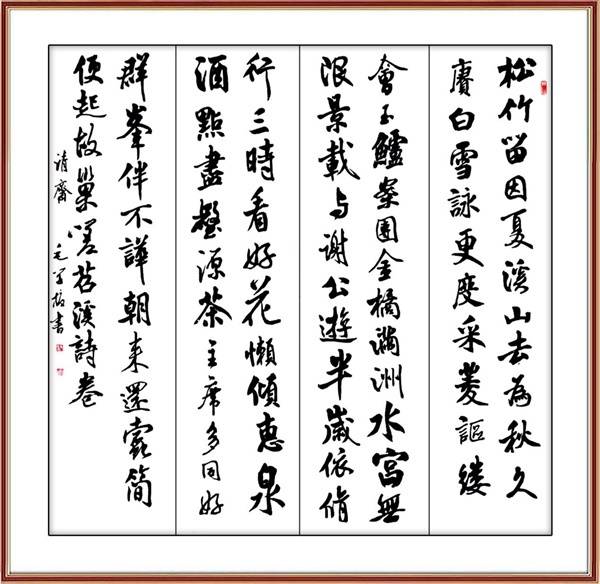 松竹留因夏溪山去為秋久
賡白雪詠更度采菱謳縷
會玉鱸案團金橘滿洲水宮無
限景載与謝公遊半歲依脩
竹三時看好花懶傾惠泉
酒點盡壑源茶主席多同好
群峯伴不譁朝来還蠹簡
便起故巢嗟苕溪詩卷
齋
毛書